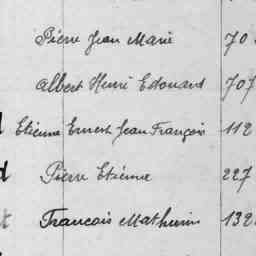 Pierre Jean Marie 70
Albert Henri Edouard 707
Etienne Ernest Jean François 112
Pierre Etienne 227
Francois Mathurin 132